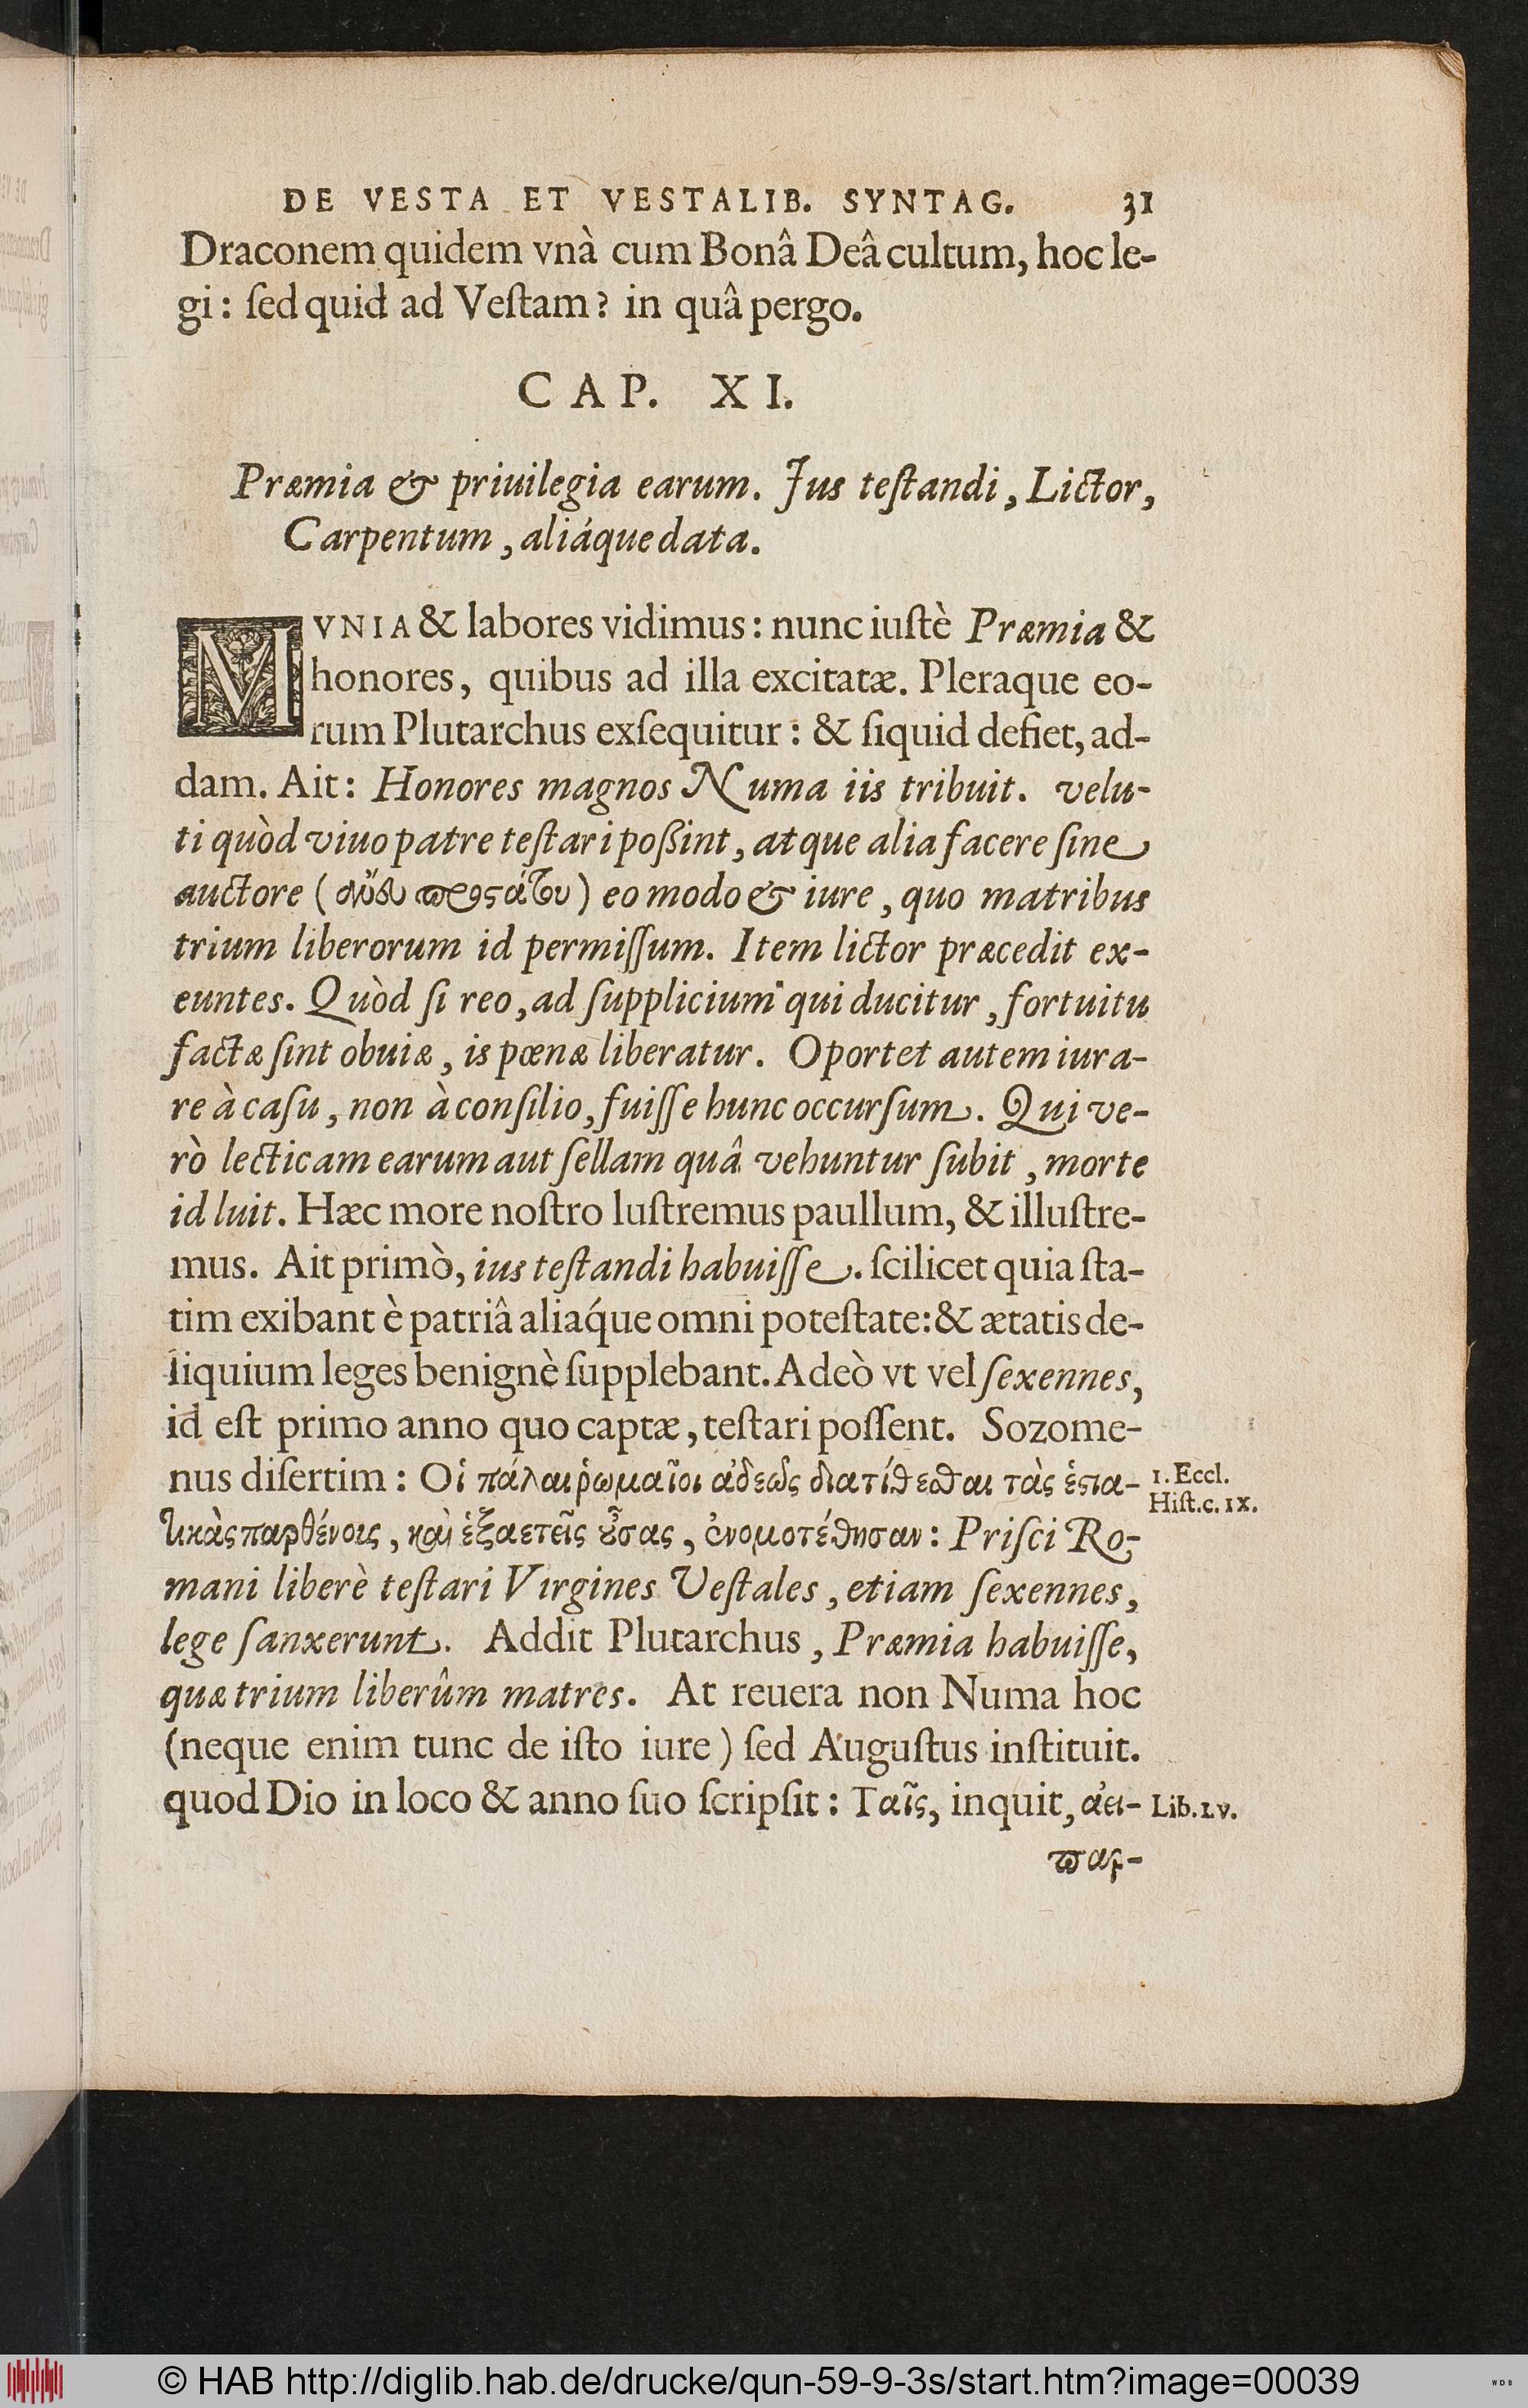 DE VESTA ET VESTALIB. SYNTAG. 31
Draconem quidem vnà cum Bonâ Deâ cultum, hoc le-
gi: ſed quid ad Veſtam? in quâ pergo.
CAP. XI.
Præmia & priuilegia earum. Jus teſtandi, Lictor,
Carpentum, aliáque data.
MVNIA & labores vidimus: nunc iuſtè Præmia &
honores, quibus ad illa excitatæ. Pleraque eo-
rum Plutarchus exſequitur: & ſiquid defiet, ad-
dam. Ait: Honores magnos Numa iis tribuit. velu-
ti quòd viuo patre teſtari poßint, atque alia facere ſine
auctore ( ) eo modo & iure, quo matribus
trium liberorum id permiſſum. Item lictor præcedit ex-
euntes. Quòd ſi reo, ad ſupplicium qui ducitur, fortuitu
factæ ſint obuiæ, is pœnæ liberatur. Oportet autem iura-
re à caſu, non à conſilio, fuiſſe hunc occurſum. Qui ve-
rò lecticam earum aut ſellam quâ vehuntur ſubit, morte
id luit. Hæc more noſtro luſtremus paullum, & illuſtre-
mus. Ait primò, ius teſtandi habuiſſe. ſcilicet quia ſta-
tim exibant è patriâ aliaq́ue omni poteſtate: & ætatis de-
liquium leges benignè ſupplebant. Adeò vt vel ſexennes,
id eſt primo anno quo captæ, teſtari poſſent. Sozome-
nus diſertim: Οἱ πάλαι ῥωμαῖοι ἀδεῶς διατίθεσθαι τὰς ἑστια- 1. Eccl.
Hiſt. c. IX.
τικὰς παρθένοις, καὶ ἑξαετεῖς οὖσας, ἐνομοτέθησαν: Priſci Ro-
mani liberè teſtari Virgines Veſtales, etiam ſexennes,
lege ſanxerunt. Addit Plutarchus, Præmia habuiſſe,
quæ trium liberûm matres. At reuera non Numa hoc
(neque enim tunc de iſto iure) ſed Auguſtus inſtituit.
quod Dio in loco & anno ſuo ſcripſit: Ταῖς, inquit, ἀει- Lib. LV.
παρ-
© HAB http://diglib.hab.de/drucke/qun-59-9-3s/start.htm?image=00039
WDB